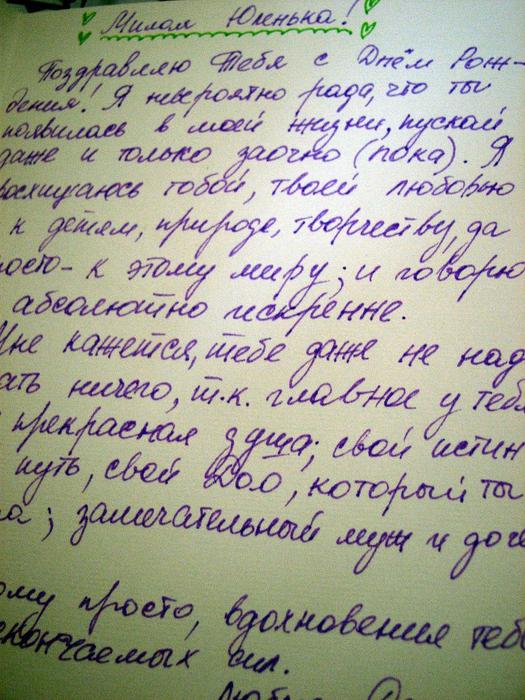 Милая Юленька!
Поздравляю Тебя с Днём Рож-
дения! Я невероятно рада, что ты
появилась в моей жизни, пускай
даже и только заочно (пока). Я
восхищаюсь тобой, твоей любовью
к детям, природе, творчеству, да
росто - к этому миру; и говорю
абсолютно искренне.
Мне кажется, тебе даже не над
ать ничего, т.к. главное у тебя
прекрасная душа; свой истин
путь, свой Дао, который ты
ла; замечательный муж и доче
ому просто, вдохновения тебе
сконçаемых сил.